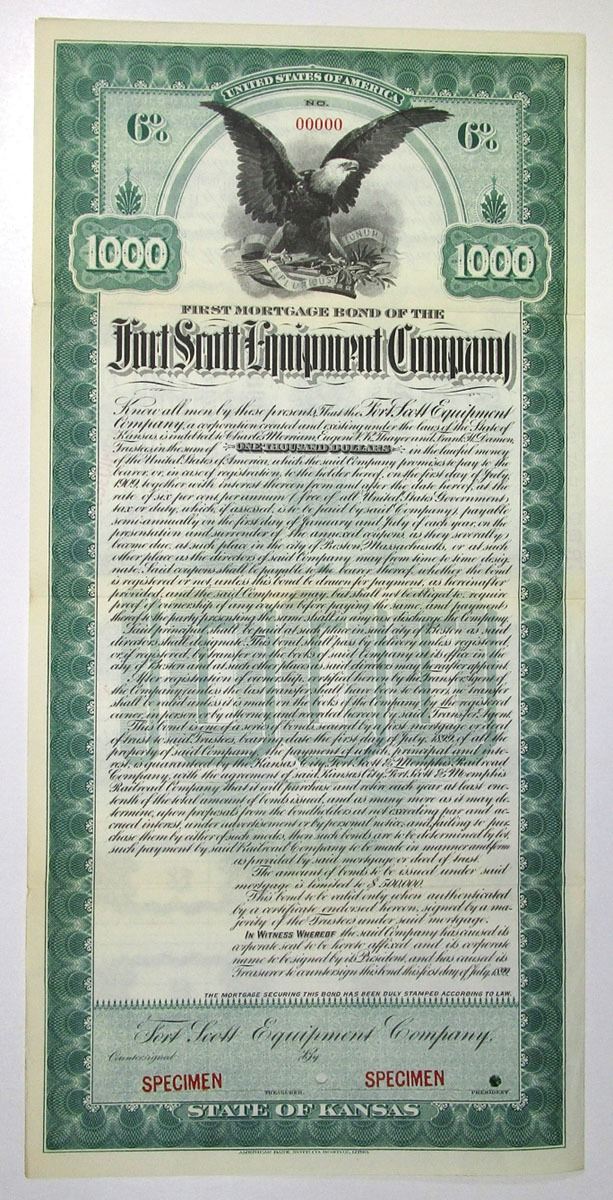 UNITED STATES OF AMERICA
NO.
00000
6%
6%
E PLURIBUS
UNUM
1000
1000
FIRST MORTGAGE BOND OF THE
Fort Scott Equipment Company
Know all men by these presents, That the Fort Scott Equipment
Company, a corporation created and existing under the laws of the State of
Kansas is indebted to Charles Merriam, Eugene V. R. Thayer and Frank H. Damon,
Trustees, in the sum of ONE THOUSAND DOLLARS in the lawful money
of the United States of America, which the said Company promises to pay to the
bearer, or, in case of registration, to the holder hereof, on the first day of July,
1909, together with interest thereon from and after the date hereof, at the
rate of six per cent. per annum (free of all United States Government
tax or duty, which, if assessed, is to be paid by said Company), payable
semi-annually on the first day of January and July of each year, on the
presentation and surrender of the annexed coupons, as they severally
become due, at such place in the city of Boston, Massachusetts, or at such
other place as the directors of said Company may from time to time desig-
nate. Said coupons shall be payable to the bearer thereof, whether the bond
is registered or not, unless this bond be drawn for payment, as hereinafter
provided, and the said Company may, but shall not be obliged to, require
proof of ownership of any coupon before paying the same, and payments
thereof to the party presenting the same shall in any case discharge the Company.
Said principal shall be paid at such place in said city of Boston as said
directors shall designate. This bond shall pass by delivery unless registered,
or, if registered, by transfer on the books of said Company at its office in the
city of Boston and at such other places as said directors may hereafter appoint.
After registration of ownership, certified hereon by the Transfer Agent
of the Company, unless the last transfer shall have been to bearer, no transfer
shall be valid unless it is made on the books of the Company by the registered
owner, in person or by attorney and recorded hereon by said Transfer Agent.
This bond is one of a series of bonds secured by a first mortgage or deed
of trust to said Trustees, bearing date the first day of July, 1899, of all the
property of said Company, the payment of which, principal and inte-
rest, is guaranteed by the Kansas City, Fort Scott & Memphis Railroad
Company, with the agreement of said Kansas City, Fort Scott & Memphis
Railroad Company that it will purchase and retire each year at least one-
tenth of the total amount of bonds issued, and as many more as it may de-
termine, upon proposals from the bondholders at not exceeding par and ac-
crued interest, under advertisement or by personal notice, and, failing to pur-
chase them by either of such modes, then such bonds are to be determined by lot,
such payment by said Railroad Company to be made in manner and form
as provided by said mortgage or deed of trust.
The amount of bonds to be issued under said
mortgage is limited to $500,000.
This bond to be valid only when authenticated
by a certificate endorsed hereon, signed by a ma-
jority of the Trustees under said mortgage.
IN WITNESS WHEREOF the said Company has caused its
corporate seal to be hereto affixed and its corporate
name to be signed by its President, and has caused its
Treasurer to countersign this bond this first day of July, 1899.
THE MORTGAGE SECURING THIS BOND HAS BEEN DULY STAMPED ACCORDING TO LAW.
Fort Scott Equipment Company,
Countersigned
By
SPECIMEN
SPECIMEN
TREASURER.
PRESIDENT
STATE OF KANSAS